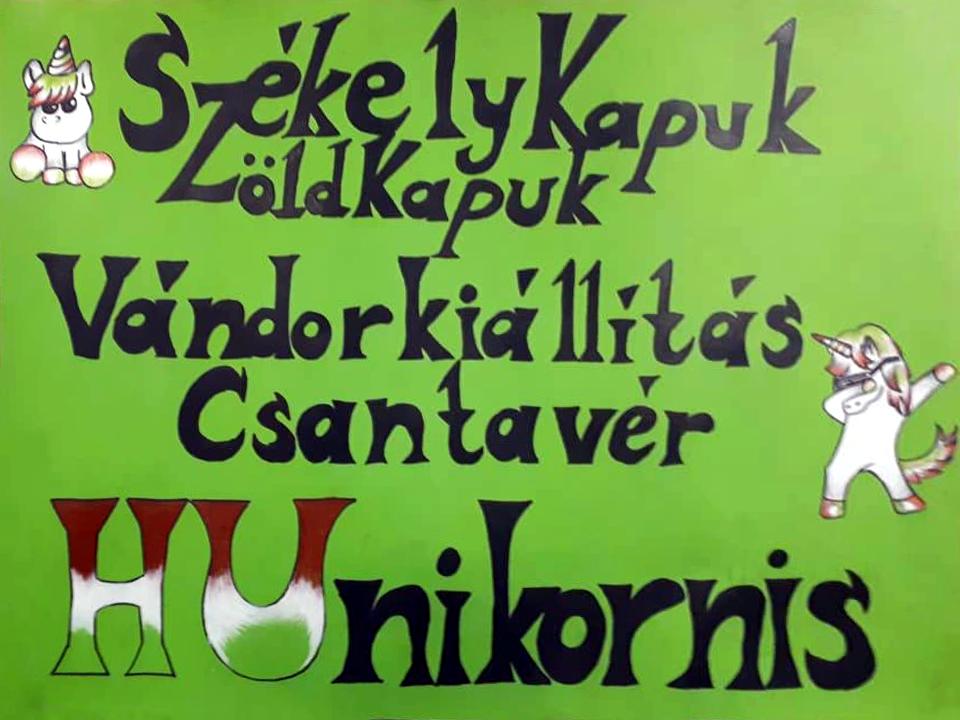 SzékelyKapuk
ZöldKapuk
Vándorkiállítás
Csantavér
HUnikornis